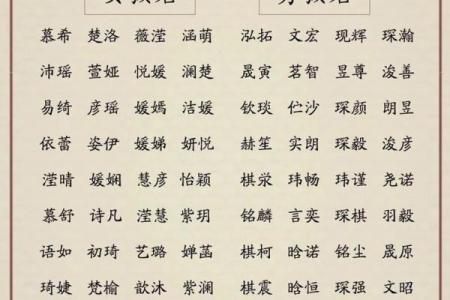 慕希 楚洛 薇滢 涵萌 泓拓 文宏 现辉 琛瀚
沛瑶 萱娅 悦媛 澜楚 晟寅 茗智 昱尊 浚善
易绮 彦瑶 媛嫣 洁媛 钦琰 伫沙 琛颜 朗昱
依蕾 姿伊 媛娣 妍悦 赫笙 实朗 琛毅 浚彦
滢晴 媛娴 慧彦 怡颖 棋汮 玮畅 玮谨 尧诺
慕舒 诗凡 滢慧 紫玥 铭麟 言奕 琛棋 羽毅
语如 初琦 艺璐 婵菡 棋柯 晗诺 铭尘 晟原
琦婕 梵榆 歆沐 紫澜 棋震 晗恒 琛强 文昭